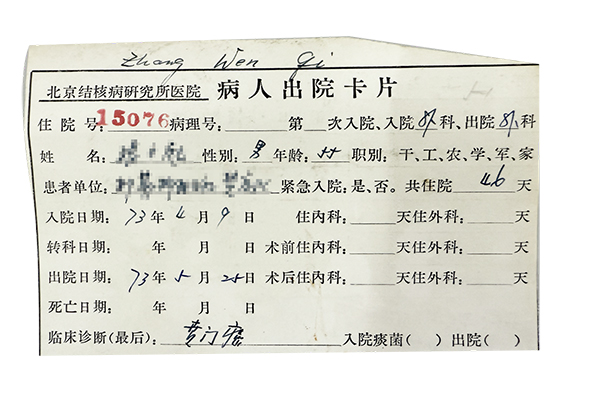 Zhang Wen Qi
北京结核病研究所医院 病人出院卡片
住院号:15076病理号:______第___次入院、入院外科、出院外科
姓 名: 性别:男年龄:55 职别:干、工、农、学、军、家
患者单位: 紧急入院:是、否。共住院 46 天
入院日期:73年4月9日 住内科:______天住外科:______天
转科日期: 年 月 日 术前住内科:______天住外科:______天
出院日期:73年5月25日 术后住内科:______天住外科:______天
死亡日期: 年 月 日
临床诊断(最后): 贲门癌 入院痰菌( ) 出院( )